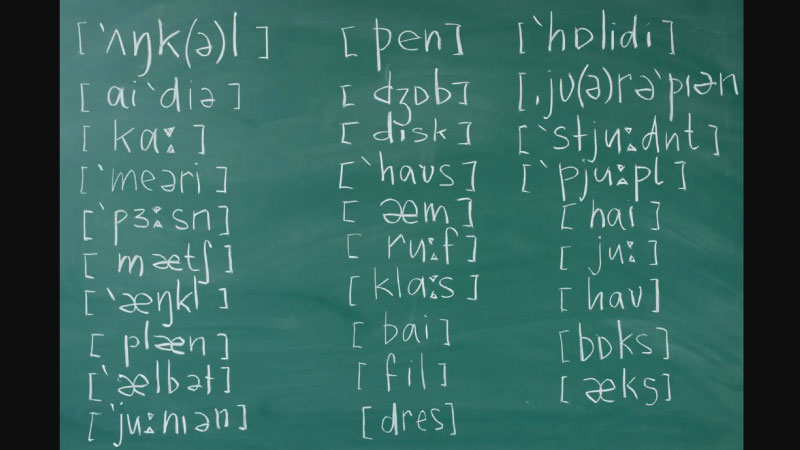 [ˋʌŋk(ə)l]
[aiˋdiə]
[kɑː]
[ˋmeəri]
[ˋpɜːsn]
[mætʃ]
[ˋæŋkl]
[plæn]
[ˋælbət]
[ˋjuːnıən]
[pen]
[dʒɒb]
[disk]
[ˋhaʊs]
[æm]
[ruːf]
[klɑːs]
[bai]
[fil]
[dres]
[ˋhɒlidi]
[ˌjʊ(ə)rəˋpıən
[ˋstjuːdnt]
[ˋpjuːpl]
[hai]
[juː]
[hav]
[bɒks]
[æks]